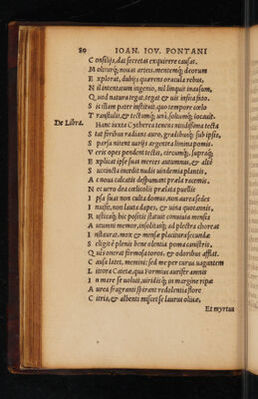 80 IOAN. IOV. PONTANI
Consilijs, dat secretas exquirere causas.
Molitusq; nouas artes, mentemq; deorum
Explorat, dubijs quærens oracula rebus,
Nil intentatum ingenio, nil linquit inausum,
Quod natura tegat, tegat & uis insita fato.
Scilicet pater instituit, quo tempore cœlo
Transtulit, & tectumq; uni, solumq; locauit.
De Libra. Hanc iuxta Cytherea tenens nitidissima tecta
Stat foribus radians auro, gradibusq; sub ipsis,
Parsq; nitent aurisq; argentea limina pomis.
Veris opes pendent tectis, circumq; supraq;
Explicat ipse suas merces autumnus, & alto
Succincta incedit nudis uindemia plantis,
A noua calcatis despumant præla racemis.
Nec uero dea cœlicolis prælata puellis
Ipsa suas non culta domus, non aurea sedes
Inuisit, non lauta dapes, & uina quotannis.
Rusticaq; hic positis statuit conuiuia mensis
Autumni memor, insolitasq; ad plectra choreas
Instaurat, mox & mensæ placitura secundæ
Eligit è plenis bene olentia poma canistris,
Quis onerat formosa toros, & odoribus afflat.
Causa latet, memini: sed me per rura uagantem
Litora Caietæ, qua Formius aurifer amnis
In mare se uoluit, uiridiq; in margine ripæ
Aurea fragranti spirant redolentia flore
Citria, & albenti miscet se laurus oliuæ,
Et myrtus